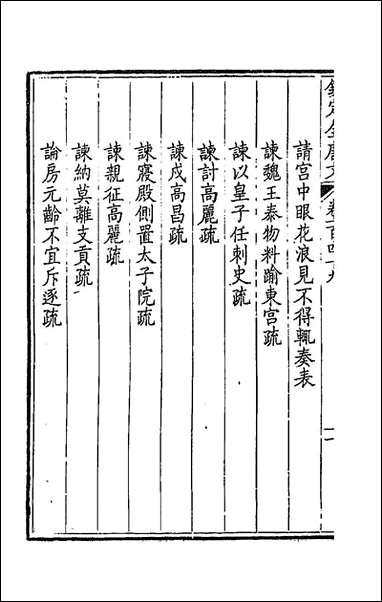 欽定全唐文 卷一百四十九 二
請宫中眼花浪見不得輒奏表
諫魏王泰物料踰東宫疏
諫以皇子任刺史疏
諫討高麗疏
諫戍高昌疏
諫寢殿側置太子院疏
諫親征高麗疏
諫納莫離支貢疏
論房元齡不宜斥逐疏